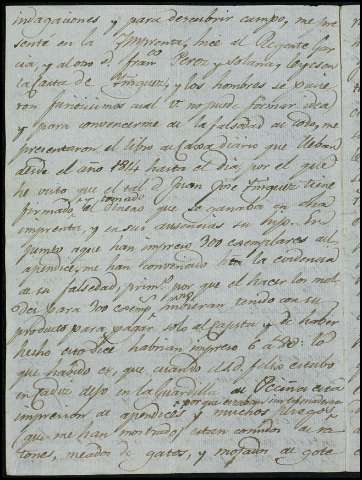 indagaciones y para descubrir campo, me pre
senté en la Imprenta, hice al Regente Gar
cia, y al otro d. Fran.co Perez y Solana, leyesen
la Carta de Iñiguez, y los hombres se pusie
ron furiosísimos cual V. no puede formar idea
y para convencerme de la falsedad de todo, me
presentaron el libro de Caxa diario que lleban
desde el año 1814 hasta el dia por el que
he visto que el tal d. Juan José Iñiguez tiene
firmado y tomado el dinero que se ganaba en dha
imprenta, y en sus ausencias su hijo. En
punto a que han impreso 300 exemplares del
apendice, me han convencido hta la evidencia
de su falsedad, prim.o por que el hacer los mol
des para 300 exemp.s no hubieran tenido con su
producto para pagar solo al Cajista y de haber
hecho esto dice habrian impreso 6 a 8: lo
que habido es, que cuando el d. Julio estubo
en Cadiz dejo en la Guardilla de esta
impresion de apendices y muchos pliegos
(que me han mostrado) estan comidos de ra
tones, meados de gatos, y mojados al gote